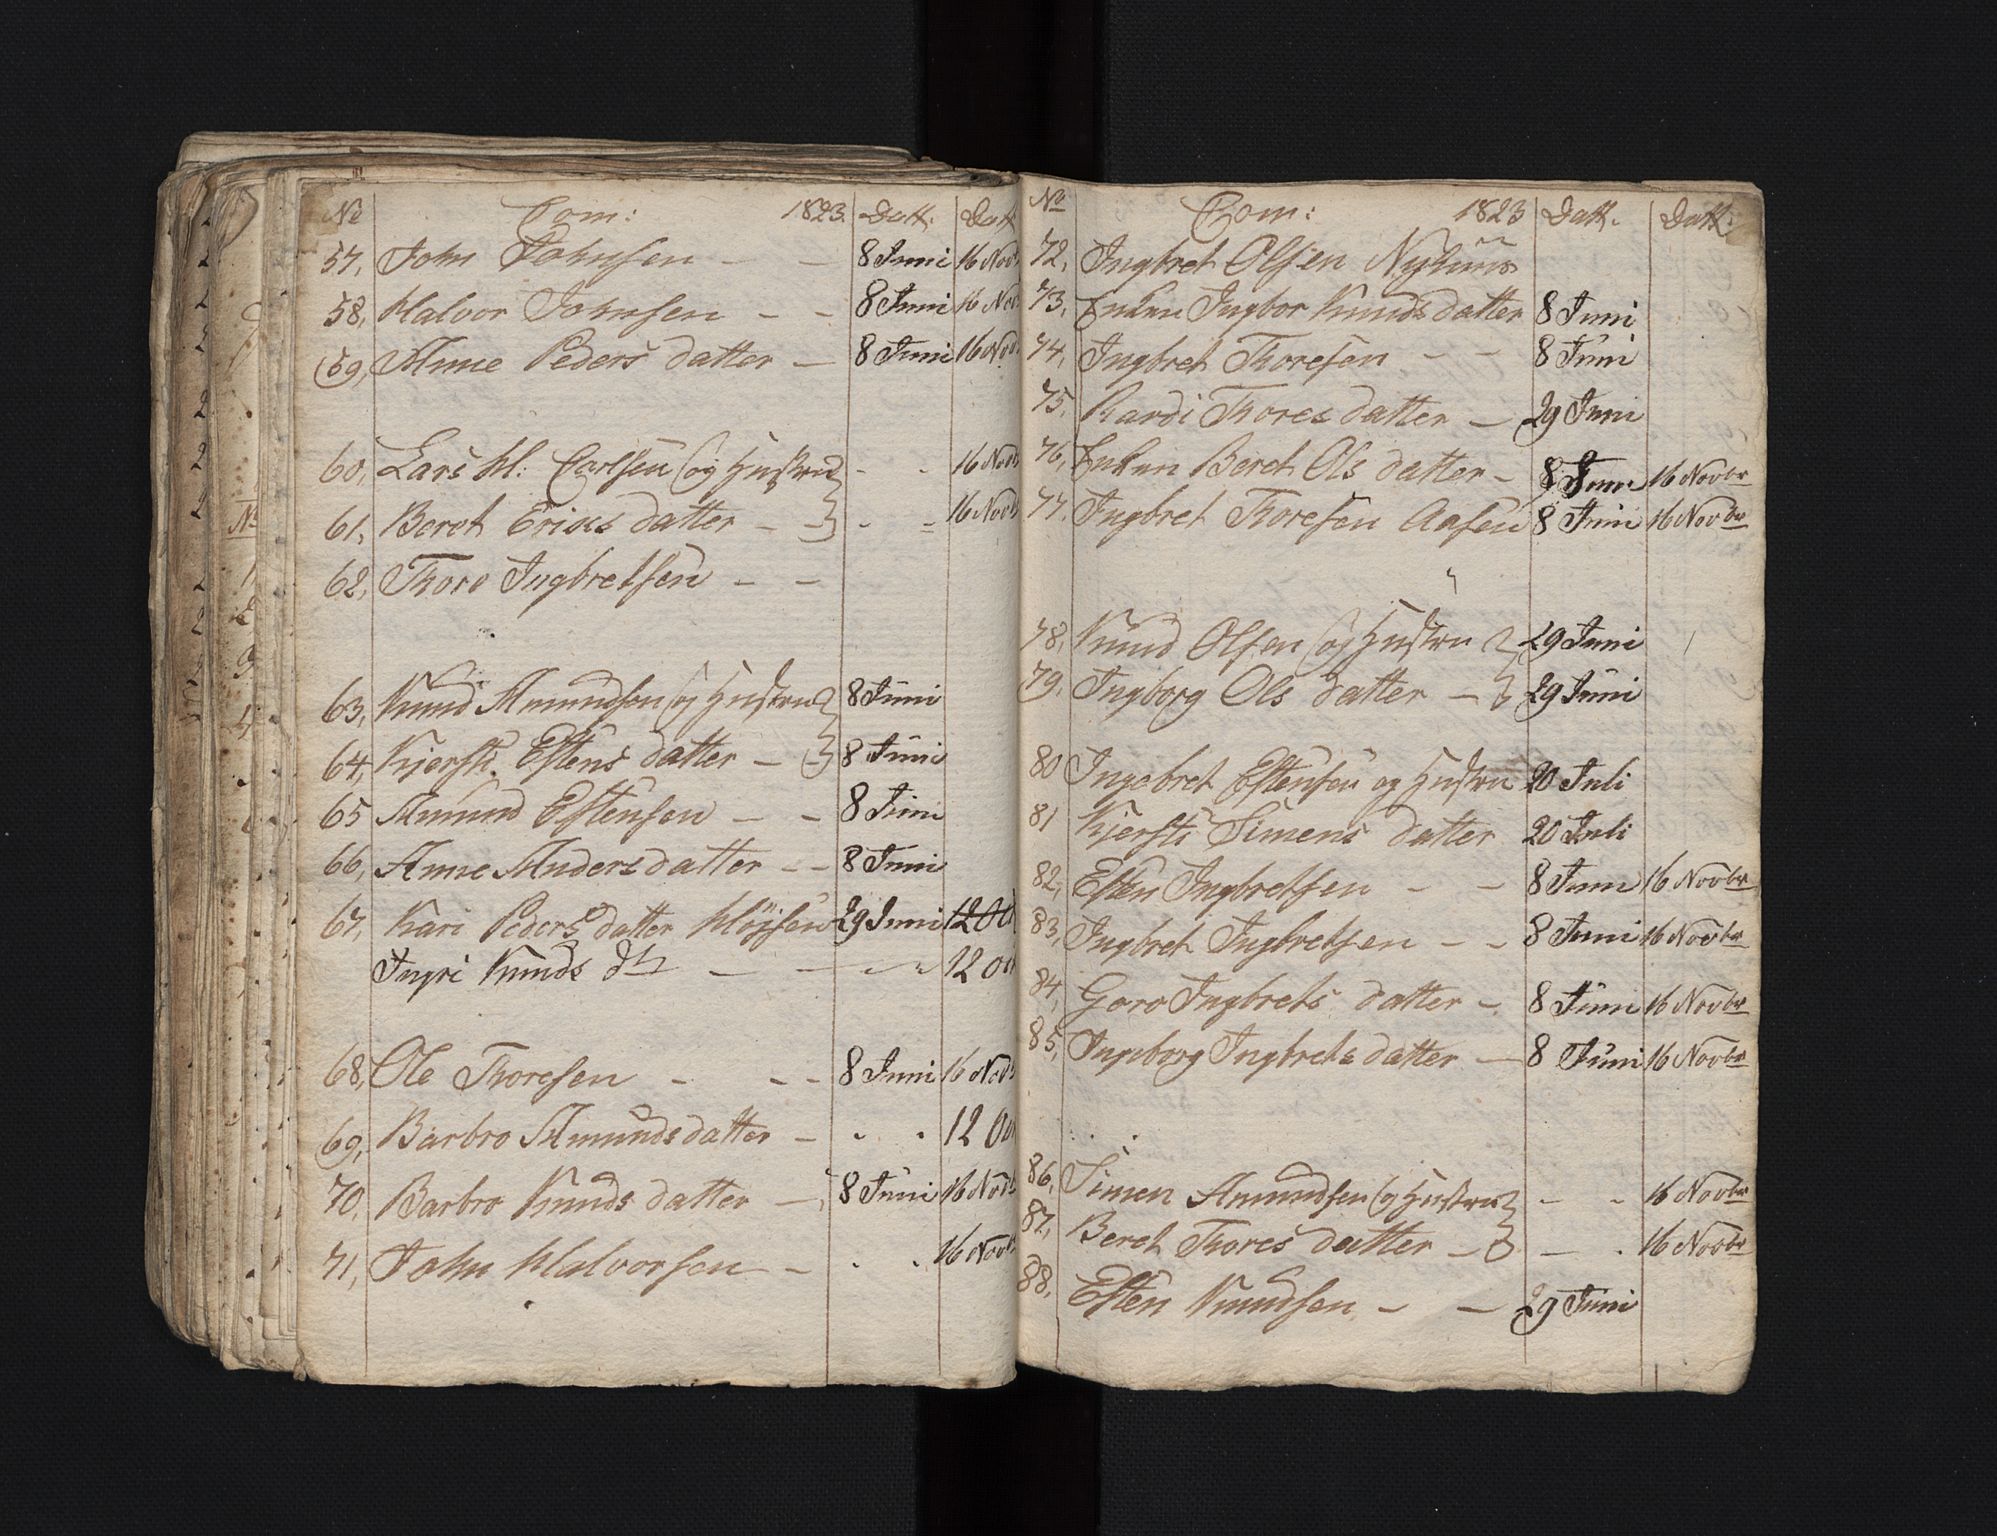 No Com: 1823. Datt. Datt
57, John Johnsen – – 8 Juni 16 Novb
58, Halvor Johnsen – – 8 Juni 16 Nov
59, Anne Peders datter – 8 Juni 16 Nov
60, Lars Hl: Carlsen og Hustru - - 16 Novb
61, Beret Erics datter – – - - 16 Novb
62, Thore Ingbretsen – –
63, Knud Amundsen og Hustru 8 Juni
64, Kjersti Estens datter – – 8 Juni
65 Amund Estensen – – 8 Juni
66, Anne Anders datter – – 8 Juni
67, Kari Peders datter Højsen 29 Juni 12 Oct
Ingri Knuds dtr – – - - 12 Oct
68, Ole Thoresen – – – 8 Juni 16 Novb
69, Barbro Amunds datter – - - 12 Oct
70, Barbro Knuds datter – 8 Juni 16 Novb
71, John Halvorsen – - - 16 Novb
No Com: 1823 Datt. Datt.
72, Ingbret Olsen Nyhuus
73, Enken Ingbor Knuds datter 8 Juni
74, Ingbret Thoresen – – 8 Juni
75, Randi Thores datter – 29 Juni
76, Enken Beret Ols datter – 8 Juni 16 Novbr
77, Ingbret Thoresen Aasen 8 Juni 16 Novbr
78, Knud Olsen og Hustru 29 Juni
79, Ingborg Ols datter – 29 Juni
80 Ingebret Estensen og Hustru 20 Juli
81 Kjersti Simens datter 20 Juli
82, Esten Ingbretsen – – 8 Juni 16 Novbr
83, Ingbret Ingbretsen – – 8 Juni 16 Novbr
84, Goro Ingbrets datter – 8 Juni 16 Novbr
85, Ingeborg Ingbrets datter – 8 Juni 16 Novbr
86, Simen Amundsen og Hustru – - 16 Novbr
87, Beret Thores datter – – - 16 Novbr
88, Esten Knudsen – – 29 Juni